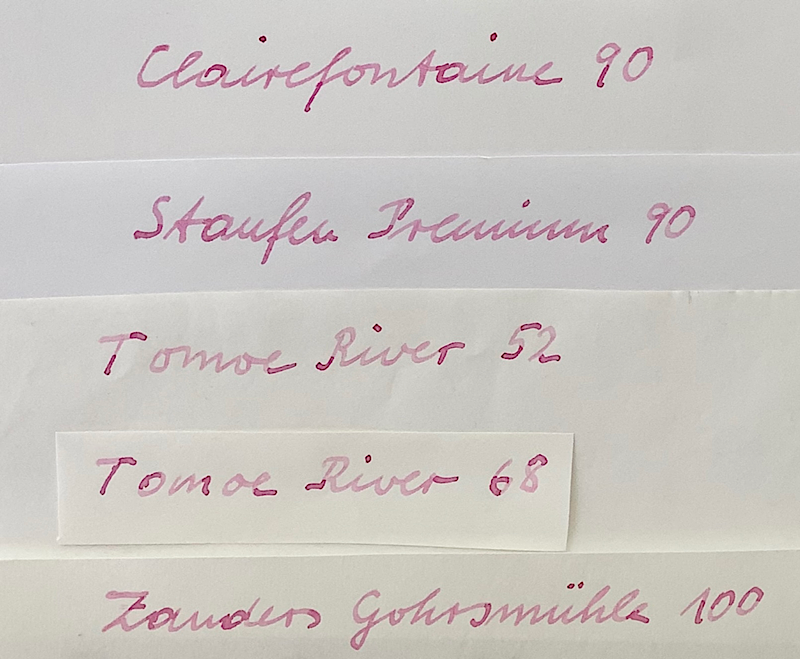 Clairefontaine 90
Staufen Premium 90
Tomoe River 52
Tomoe River 68
Zanders Gohrsmühle 100